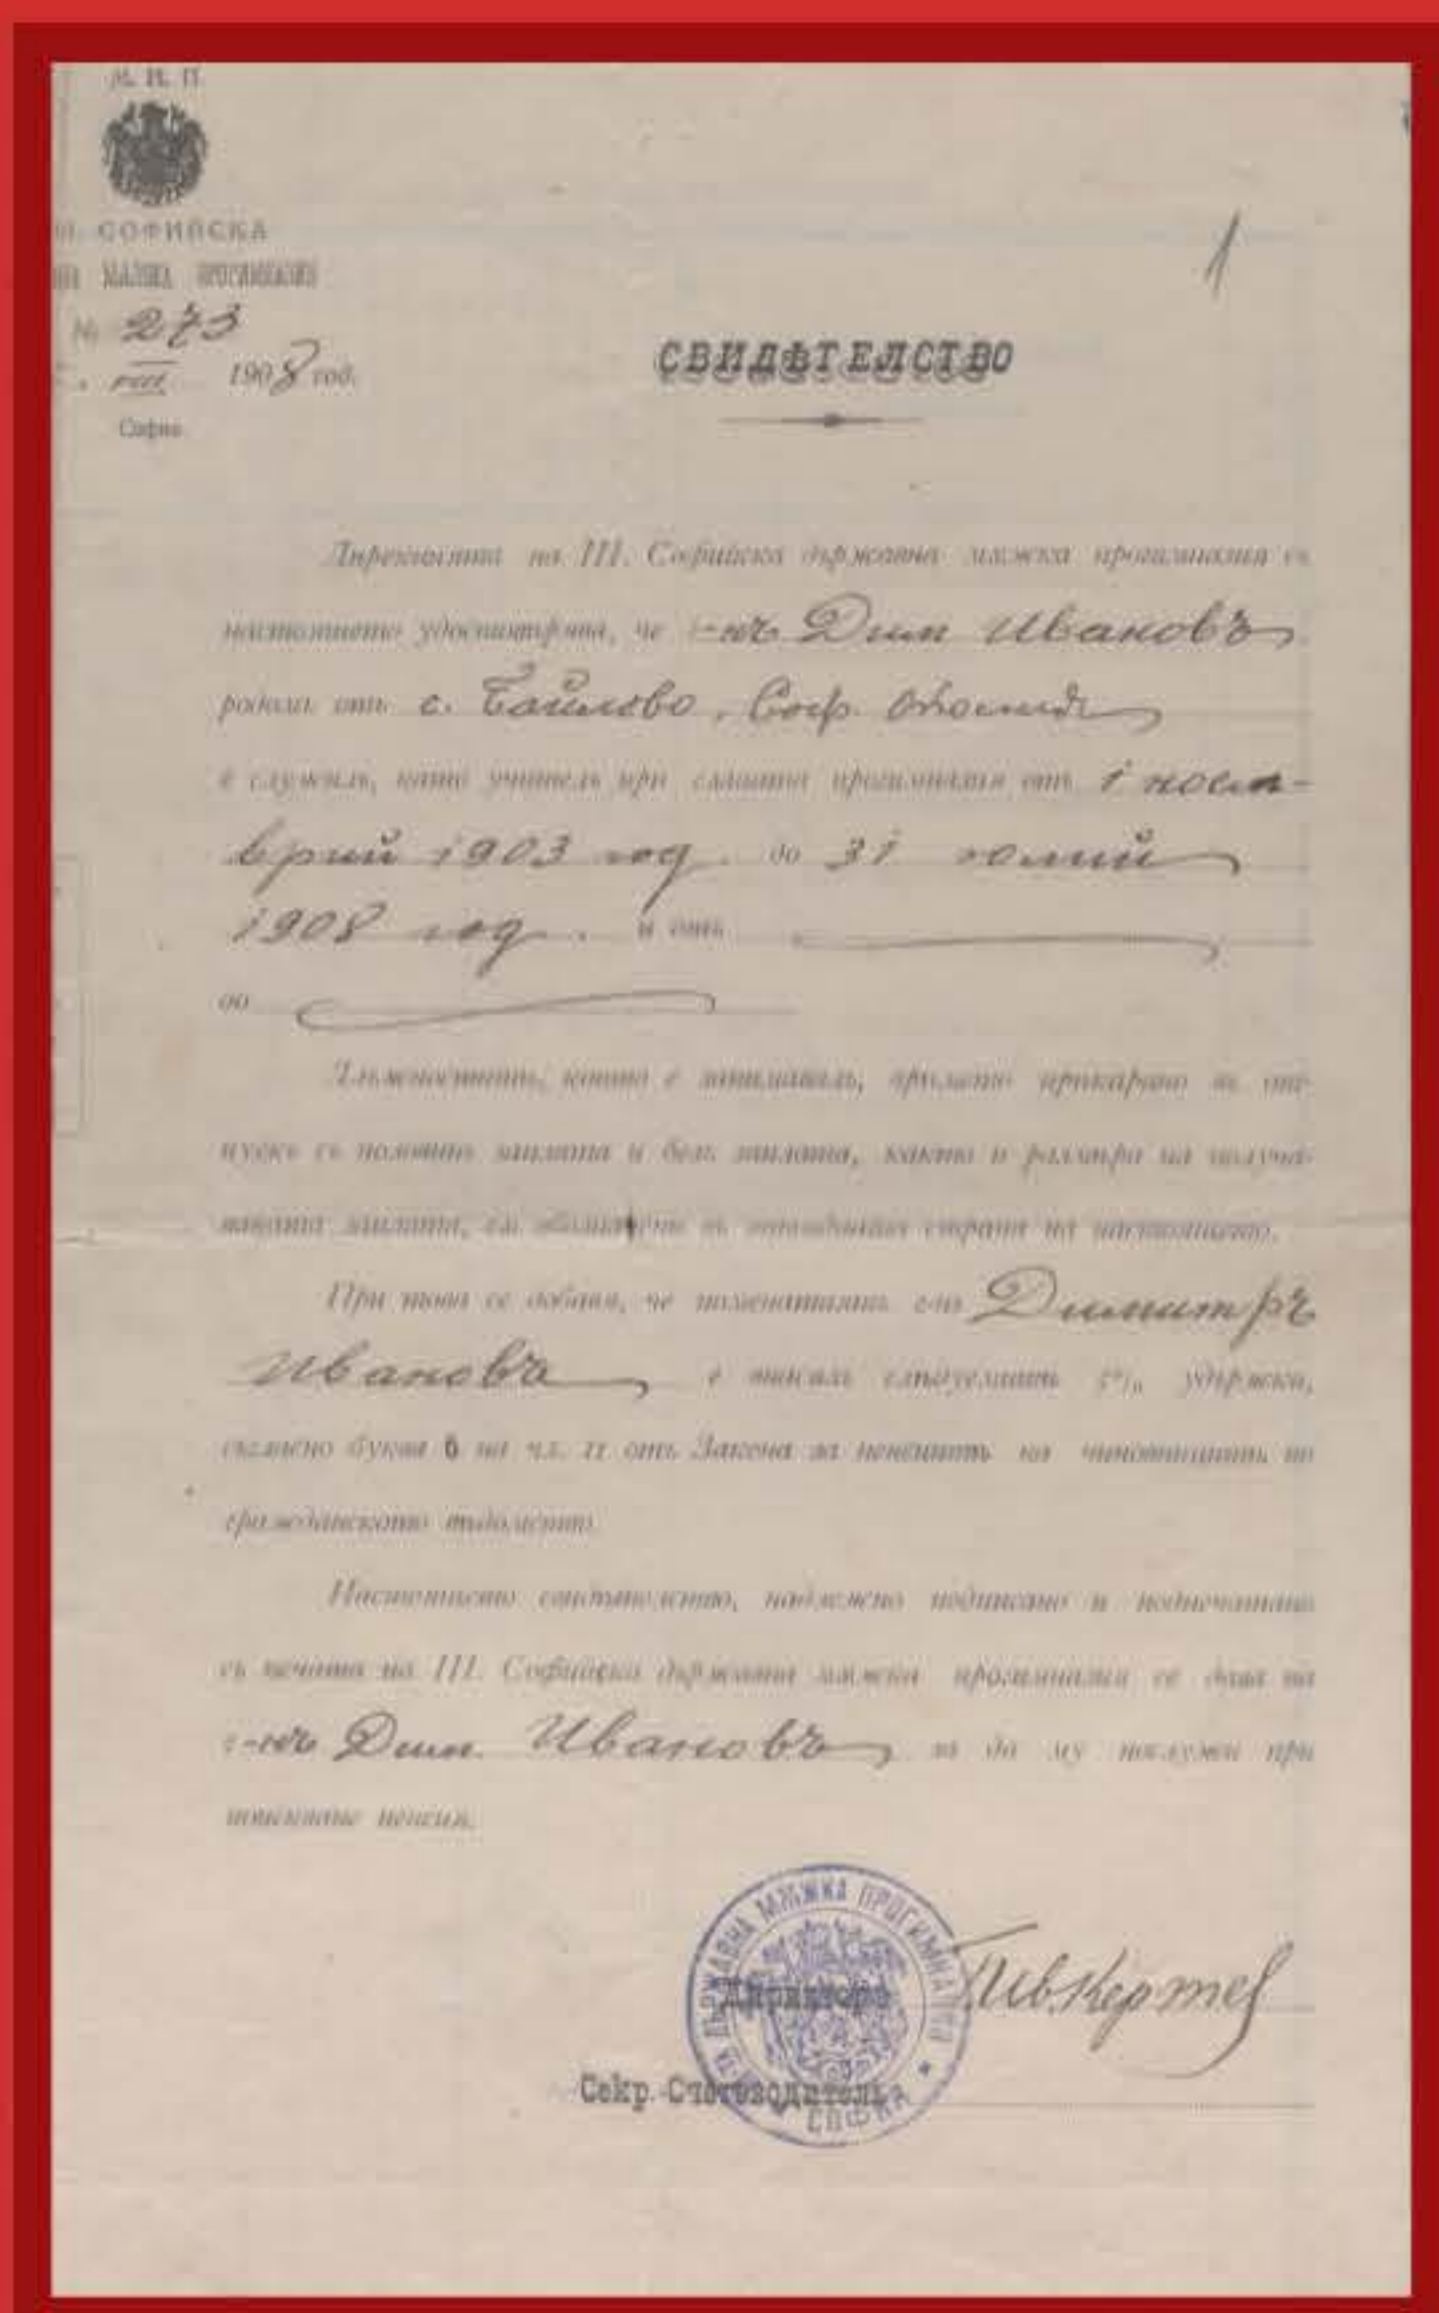 М. Н. П.
СОФИЙСКА
МѪЖКА ПРОГИМНАЗИЯ
№ 273
VIII 1908 год.
София
1
СВИДѢТЕЛСТВО
Дирекцията на III. Софийска държавна мѫжка прогимназия съ
настоящето удостовѣрява, че г-нъ Дим Ивановъ
родомъ отъ с. Байлово, Соф. Околия
е служилъ, като учитель при сѫщата прогимназия отъ 1 ноем-
врий 1903 год. до 31 юлий
1908 год. и отъ
до
Длъжностьта, която е занимавалъ, времето прикарано въ от-
пускъ съ половинъ заплата и безъ заплата, както и размѣра на получа-
ваната заплата, сѫ обозначени въ страна на настоящето.
При това се добавя, че поменатиятъ г-нъ Димитръ
Ивановъ е внасялъ слѣдуемитѣ 5% удръжки,
съгласно буква б на чл. 11 отъ Закона за пенсиитѣ на чиновницитѣ по
гражданското вѣдомство.
Настоящето свидѣтелство, надлежно подписано и подпечатано
съ печата на III. Софийска държавна мѫжка прогимназия се дава на
г-нъ Дим. Ивановъ за да му послужи при
поискване пенсия.
ДЪРЖАВНА МѪЖКА ПРОГИМНАЗИЯ
Директоръ
Секр. Счетоводитель
СОФИЯ